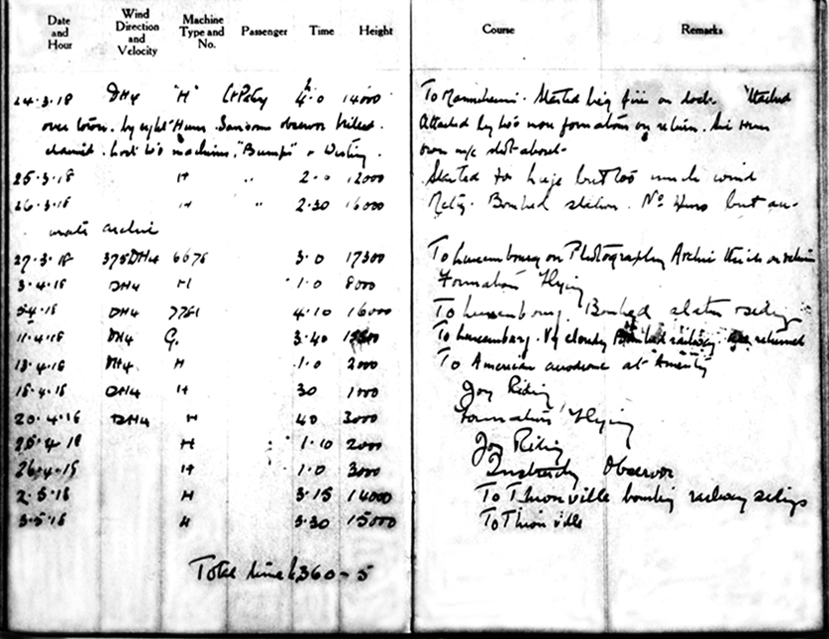 Date and Hour Wind Direction and Velocity Machine Type and No. Passenger Time Height Course Remarks
24·3·18 DH4 "H" Lt Patey 4·0 14000 To Mannheim. Started big fire on dock. Attacked
over town. by eight Huns. Sansom observer killed. Attacked by two more formations on return. Six Huns
Lost two machines, "Bumps" & Westing. own m/c shot about-
25·3·18 H " 2·0 12000 Started to but too much wind
26·3·18 H " 2·30 16000 Metz. Bombed station. No Huns but ac-
curate archie
27·3·18 375DH4 6676 3·0 17300 To Luxembourg on Photography Archie thick on return
3·4·18 DH4 H 1·0 8000 Formation Flying
5·4·18 DH4 7761 4·10 16000 To Luxembourg Bombed station sidings
11·4·18 DH4 G. 3·40 To Luxembourg. V. cloudy Bombed railway returned
13·4·18 DH4 H 1·0 2000 To American aerodrome at "Amenty"
15·4·18 DH4 H 30 1000 Joy Riding
20·4·18 DH4 H 40 3000 Formation Flying
25·4·18 H 1·10 2000 Joy Riding
26·4·18 H 1·0 3000 Observor
2·5·18 H 3·15 14000 To Thionville bombing railway sidings
3·5·18 H 3·30 15000 To Thionville
Total time 360-5